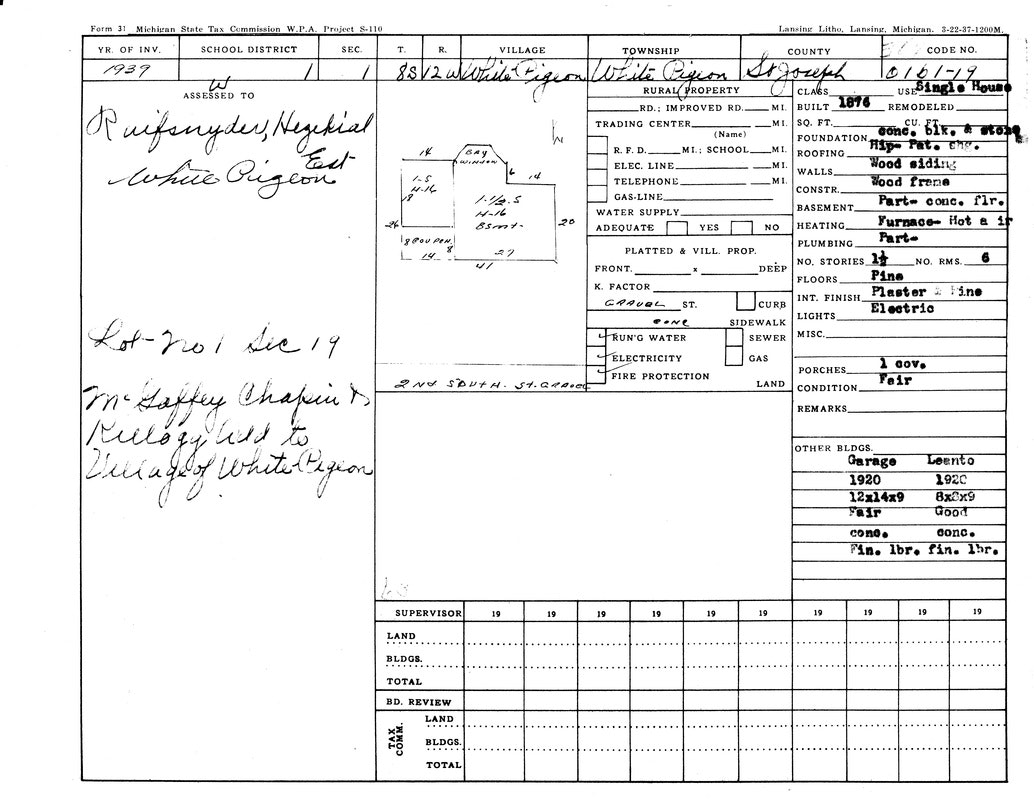 Form 31 Michigan State Tax Commission W.P.A. Project S-110
Lansing Litho, Lansing, Michigan. 3-22-37-1200M.
YR. OF INV. SCHOOL DISTRICT SEC. T. R. VILLAGE TOWNSHIP COUNTY CODE NO.
1939 1 1 8S 12W White Pigeon White Pigeon St Joseph 0101-19
W
ASSESSED TO
Ruifsnyder, Hezekial
East
White Pigeon
Lot- No 1 Sec 19
McGaffey Chapin &
Kellogg Add to
Village of White Pigeon
14
BAY
WINDOW
6
14
1-S
H-16
18
1-1/2 S
H-16
BSMT-
20
26
8 8
14
27
41
2ND SOUTH. ST. GRAVEL
RURAL PROPERTY
RD.; IMPROVED RD. MI.
TRADING CENTER MI.
(Name)
R. F. D. MI.; SCHOOL MI.
ELEC. LINE MI.
TELEPHONE MI.
GAS-LINE
WATER SUPPLY
ADEQUATE YES NO
PLATTED & VILL. PROP.
FRONT. x DEEP
K. FACTOR
GRAVEL ST. CURB
CONC SIDEWALK
RUN'G WATER SEWER
ELECTRICITY GAS
FIRE PROTECTION
LAND
CLASS USE Single House
BUILT 1874 REMODELED
SQ. FT. CU. FT.
FOUNDATION conc. blk. & stone
ROOFING Hip- Pat. shg.
WALLS Wood siding
CONSTR. Wood frame
BASEMENT Part- conc. flr.
HEATING Furnace- Hot air
PLUMBING Part-
NO. STORIES 1½ NO. RMS. 6
FLOORS Pine
INT. FINISH Plaster & Pine
LIGHTS Electric
MISC.
PORCHES 1 cov.
CONDITION Fair
REMARKS
OTHER BLDGS.
Garage Leanto
1920 1920
12x14x9 8x8x9
Fair Good
conc. conc.
Fin. lbr. fin. lbr.
SUPERVISOR 19 19 19 19 19 19 19 19 19
LAND
BLDGS.
TOTAL
BD. REVIEW
TAX COMM.
LAND
BLDGS.
TOTAL